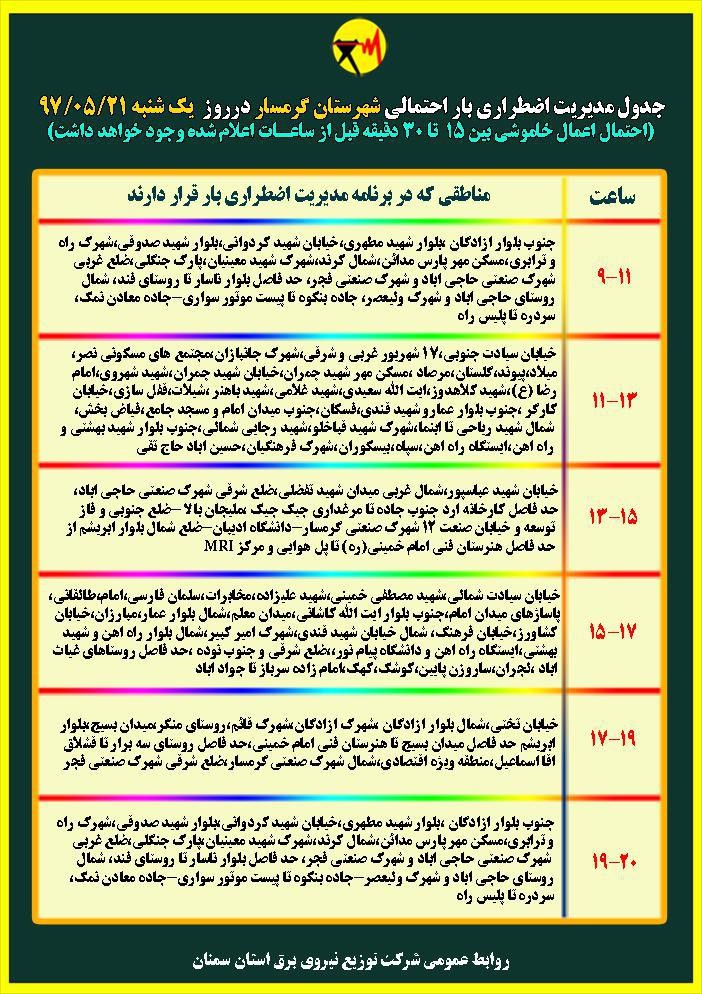 جدول مدیریت اضطراری بار احتمالی شهرستان گرمسار درروز یک شنبه ۹۷/۰۵/۲۱
(احتمال اعمال خاموشی بین ۱۵ تا ۳۰ دقیقه قبل از ساعات اعلام شده وجود خواهد داشت)
ساعت
مناطقی که در برنامه مدیریت اضطراری بار قرار دارند
۹-۱۱
جنوب بلوار ازادگان ،بلوار شهید مطهری،خیابان شهید کردوانی،بلوار شهید صدوقی،شهرک راه
و ترابری،مسکن مهر پارس مدائن،شمال کرند،شهرک شهید معینیان،پارک جنگلی،ضلع غربی
شهرک صنعتی حاجی اباد و شهرک صنعتی فجر، حد فاصل بلوار ناسار تا روستای فند، شمال
روستای حاجی اباد و شهرک ولیعصر، جاده بنکوه تا پیست موتور سواری-جاده معادن نمک،
سردره تا پلیس راه
۱۱-۱۳
خیابان سیادت جنوبی،۱۷ شهریور غربی و شرقی،شهرک جانبازان،مجتمع های مسکونی نصر،
میلاد،پیوند،گلستان،مرصاد ،مسکن مهر شهید چمران،خیابان شهید چمران،شهید شهروی،امام
رضا (ع)،شهید کلاهدوز،ایت الله سعیدی،شهید غلامی،شهید باهنر ،شیلات،قفل سازی،خیابان
کارگر ،جنوب بلوار عمارو شهید قندی،فسکان،جنوب میدان امام و مسجد جامع،فیاض بخش،
شمال شهید ریاحی تا ابنما،شهرک شهید فیاخلو،شهید رجایی شمالی،جنوب بلوار شهید بهشتی و
راه اهن،ایستگاه راه اهن،سپاه،بیسکوران،شهرک فرهنگیان،حسین اباد حاج تقی
۱۳-۱۵
خیابان شهید عباسپور،شمال غربی میدان شهید تفضلی،ضلع شرقی شهرک صنعتی حاجی اباد،
حد فاصل کارخانه ارد جنوب جاده تا مرغداری جیک جیک ،ملیجان بالا -ضلع جنوبی و فاز
توسعه و خیابان صنعت ۱۲ شهرک صنعتی گرمسار-دانشگاه ادیبان-ضلع شمال بلوار ابریشم از
حد فاصل هنرستان فنی امام خمینی(ره) تا پل هوایی و مرکز MRI
۱۵-۱۷
خیابان سیادت شمالی،شهید مصطفی خمینی،شهید علیزاده،مخابرات،سلمان فارسی،امام،طالقانی،
پاساژهای میدان امام،جنوب بلوار ایت الله کاشانی،میدان معلم،شمال بلوار عمار،مبارزان،خیابان
کشاورز،خیابان فرهنگ، شمال خیابان شهید قندی،شهرک امیر کبیر،شمال بلوار راه اهن و شهید
بهشتی،ایستگاه راه اهن و دانشگاه پیام نور،،ضلع شرقی و جنوب نوده ،حد فاصل روستاهای غیاث
اباد ،لجران،ساروزن پایین،کوشک،کهک،امام زاده سرباز تا جواد اباد
۱۷-۱۹
خیابان تختی،شمال بلوار ازادگان ،شهرک ازادگان،شهرک قائم،روستای منگر،میدان بسیج،بلوار
ابریشم حد فاصل میدان بسیج تا هنرستان فنی امام خمینی،حد فاصل روستای سه برار تا قشلاق
اقا اسماعیل،منطقه ویژه اقتصادی،شمال شهرک صنعتی گرمسار،ضلع شرقی شهرک صنعتی فجر
۱۹-۲۰
جنوب بلوار ازادگان ،بلوار شهید مطهری،خیابان شهید کردوانی،بلوار شهید صدوقی،شهرک راه
و ترابری،مسکن مهر پارس مدائن،شمال کرند،شهرک شهید معینیان،پارک جنگلی،ضلع غربی
شهرک صنعتی حاجی اباد و شهرک صنعتی فجر، حد فاصل بلوار ناسار تا روستای فند، شمال
روستای حاجی اباد و شهرک ولیعصر-جاده بنکوه تا پیست موتور سواری-جاده معادن نمک،
سردره تا پلیس راه
روابط عمومی شرکت توزیع نیروی برق استان سمنان